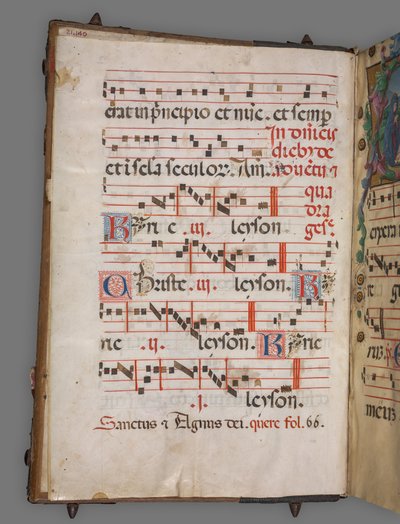 21.140
erat in p̄ncipio et nūc. et semp̄
In dn̄icis
diebꝰ de
et ī sc̄la seculoꝝ. Am̄.
qua
dra
gesᵉ
Kyrie .iii. leyson.
Christe .iii. leyson. K
rie .ii. leyson. Kyrie
.i. leyson.
Sanctus ⁊ Agnus dei. quere fol. 66.